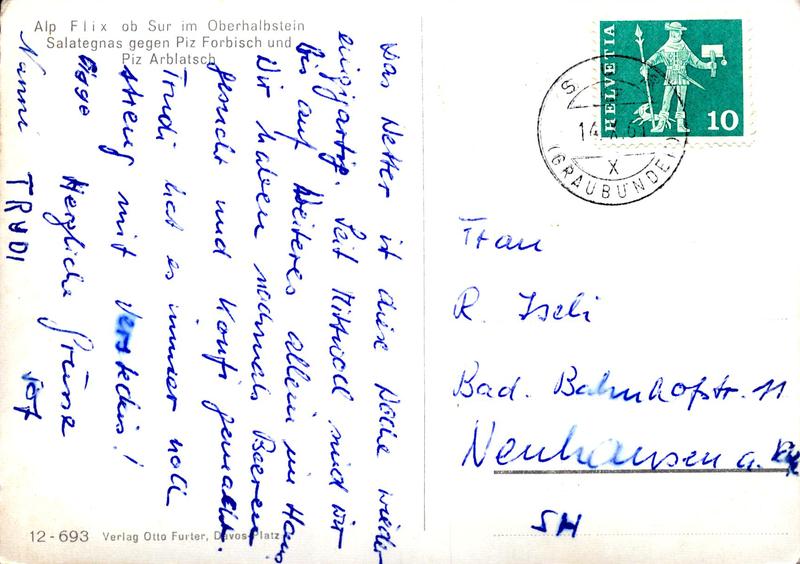 Alp Flix ob Sur im Oberhalbstein
Salategnas gegen Piz Forbisch und
Piz Arblatsch
Das Wetter ist diese Woche wieder
einzigartig. Seit Mittwoch sind wir
bis auf Weiteres allein im Haus
Wir haben nochmals Beeren
gesucht und Konfi gemacht.
Trudi hat es immer noch
streng mit Verstecklis!
Herzliche Grüsse
Nanni
TRUDI
HELVETIA
10
14
(GRAUBÜNDEN)
X
Frau
R. Iseli
Bad. Bahnhofstr. 11
Neuhausen a.
SH
12-693 Verlag Otto Furter, Davos-Platz